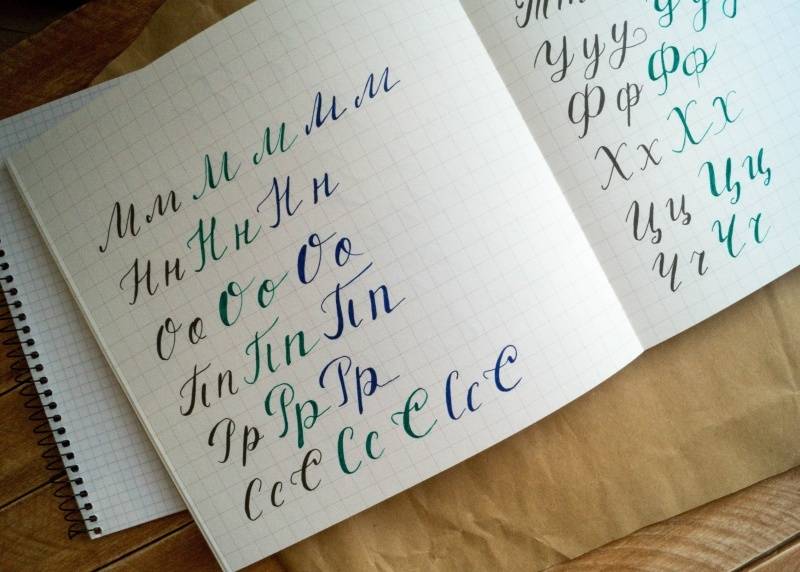 Мм Мм Мм
Нн Нн Нн
Оо Оо Оо
Пп Пп Пп
Рр Рр Рр
Сс С Сс С Сс С
Тт
Ууу Ууу
Фф Фф
Хх Хх
Цц Цц
Чч Чч